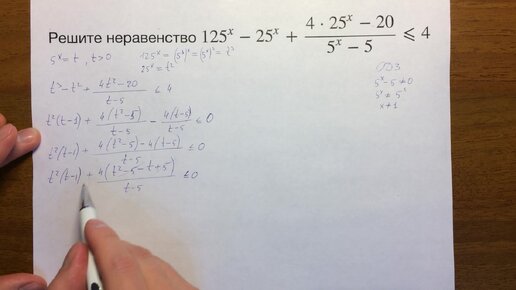 Решите неравенство 125ˣ − 25ˣ + (4 · 25ˣ − 20)/(5ˣ − 5) ⩽ 4
5ˣ = t, t>0
125ˣ = (5³)ˣ = (5ˣ)³ = t³
25ˣ = t²
ОДЗ
5ˣ − 5 ≠ 0
5ˣ ≠ 5¹
x ≠ 1
t³ − t² + (4t² − 20)/(t−5) ≤ 4
t²(t−1) + 4(t²−5)/(t−5) − 4(t−5)/(t−5) ≤ 0
t²(t−1) + (4(t²−5) − 4(t−5))/(t−5) ≤ 0
t²(t−1) + 4(t²−5−t+5)/(t−5) ≤ 0